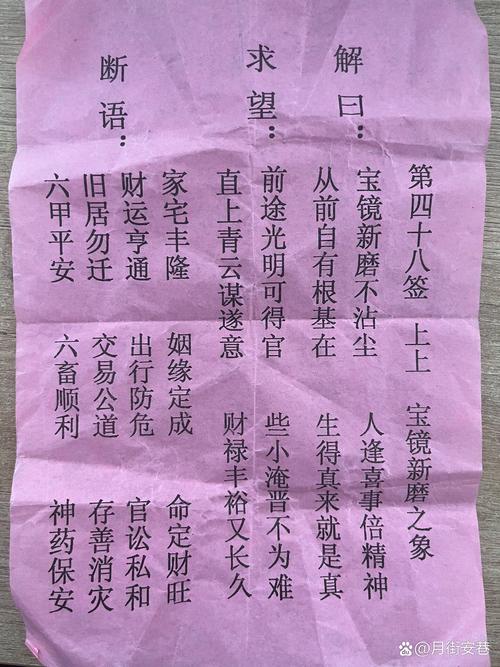 第四十八签 上上 宝镜新磨之象
解曰：
宝镜新磨不沾尘 人逢喜事倍精神
从前自有根基在 生得真来就是真
求望：
前途光明可得官 些小淹晋不为难
直上青云谋遂意 财禄丰裕又长久
断语：
家宅丰隆 姻缘定成 命定财旺
财运亨通 出行防危 官讼私和
旧居勿迁 交易公道 存善消灾
六甲平安 六畜顺利 神药保安
@月街安巷